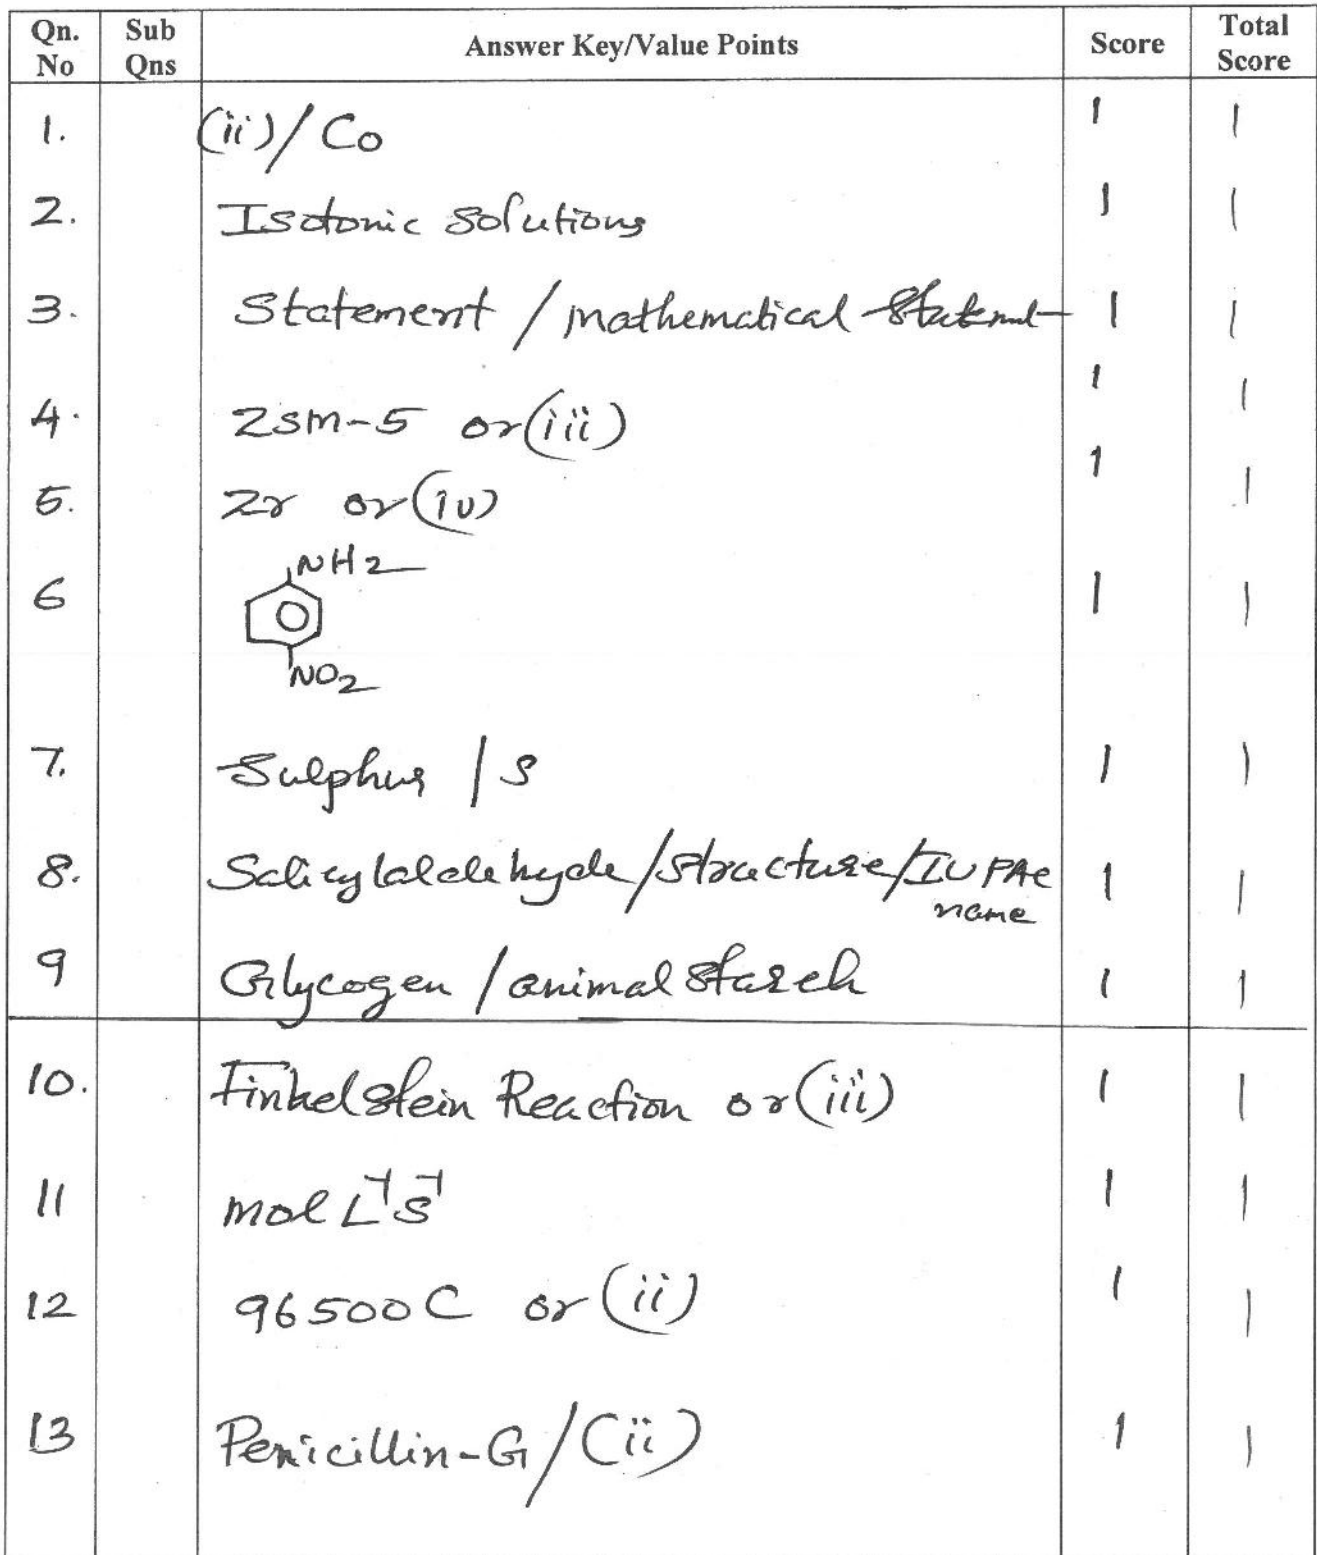 Qn. No Sub Qns Answer Key/Value Points Score Total Score
1. (ii)/Co 1 1
2. Isotonic solutions 1 1
3. Statement / mathematical Statement 1 1
4. ZSM-5 or (iii) 1 1
5. Zr or (iv) 1 1
NH2
6 1 1
NO2
7. Sulphur / S 1 1
8. Salicylaldehyde/structure/IUPAC name 1 1
9 Glycogen / animal starch 1 1
10. Finkelstein Reaction or (iii) 1 1
11 mol L⁻¹ s⁻¹ 1 1
12 96500 C or (ii) 1 1
13 Penicillin-G/(ii) 1 1